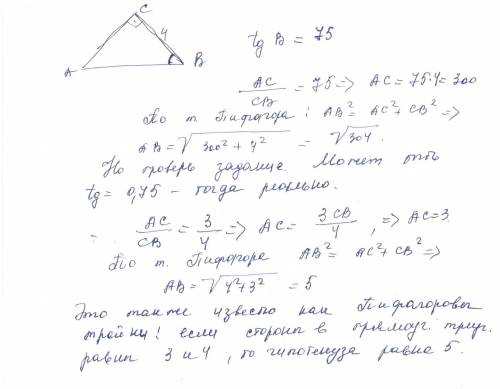 C
4
A
B
tg B = 75
AC/CB = 75 => AC = 75·4 = 300
По т. Пифагора: AB² = AC² + CB² =>
AB = √300² + 4² = √304.
Но проверь задание. Может быть
tg = 0,75 – тогда реально.
AC/CB = 3/4 => AC = 3CB/4, => AC = 3
По т. Пифагора AB² = AC² + CB² =>
AB = √4² + 3² = 5
Это также известно как Пифагоровы
тройки! если стороны в прямоуг. треуг.
равны 3 и 4, то гипотенуза равна 5.